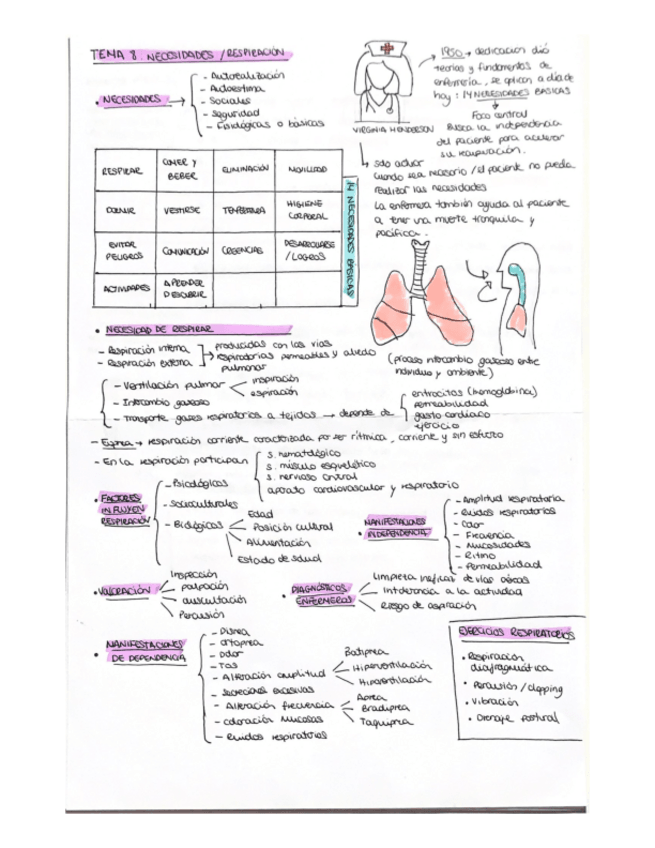 TEMA 8. NECESIDADES / RESPIRACIÓN
• NECESIDADES →
- Autorealización
- Autoestima
- Sociales
- Seguridad
- Fisiológicas o básicas
VIRGINIA HENDERSON
→ 1950 → dedicación dió
teorías y fundamentos de
enfermería, se aplican a día de
hoy: 14 NECESIDADES BASICAS
Foco central
Busca la independencia
del paciente para acelerar
su recuperación.
→ solo actuar
cuando sea necesario / el paciente no pueda
realizar las necesidades
La enfermera también ayuda al paciente
a tener una muerte tranquila y
pacífica.
RESPIRAR
COMER Y
BEBER
ELIMINACIÓN
MOVILIDAD
DORMIR
VESTIRSE
TEMPERATURA
HIGIENE
CORPORAL
EVITAR
PELIGROS
COMUNICACIÓN
CREENCIAS
DESARROLLARSE
/ LOGROS
ACTIVIDADES
APRENDER
DESCUBRIR
14 NECESIDADES BASICAS
• NECESIDAD DE RESPIRAR
- Respiración interna
- Respiración externa
→ producidas con las vías
respiratorias permeables y alveolo
pulmonar
(proceso intercambio gaseoso entre
individuo y ambiente)
- Ventilación pulmonar
inspiración
espiración
- Intercambio gaseoso
- Transporte gases respiratorios a tejidos → depende de
eritrocitos (hemoglobina)
permeabilidad
gasto cardiaco
ejercicio
- Eupnea → respiración corriente caracterizada por ser rítmica, corriente y sin esfuerzo
- En la respiración participan
s. hematológico
s. músculo esquelético
s. nervioso central
aparato cardiovascular y respiratorio
• FACTORES
INFLUYEN
RESPIRACIÓN
- Psicológicas
- Socioculturales
- Biológicas
Edad
Posición cultural
Alimentación
Estado de salud
• MANIFESTACIONES
INDEPENDENCIA
- Amplitud respiratoria
- Ruidos respiratorios
- Color
- Frecuencia
- Mucosidades
- Ritmo
- Permeabilidad
• VALORACIÓN
Inspección
palpación
auscultación
Percusión
• DIAGNÓSTICOS
ENFERMEROS
Limpieza ineficaz de vías aéreas
Intolerancia a la actividad
Riesgo de aspiración
• MANIFESTACIONES
DE DEPENDENCIA
- Disnea
- Ortopnea
- Dolor
- Tos
- Alteración amplitud
Batipnea
Hiperventilación
Hipoventilación
- Secreciones excesivas
- Alteración frecuencia
Apnea
Bradipnea
Taquipnea
- coloración mucosas
- Ruidos respiratorios
EJERCICIOS RESPIRATORIOS
• Respiración
diafragmática
• Percusión / clapping
• Vibración
• Drenaje postural